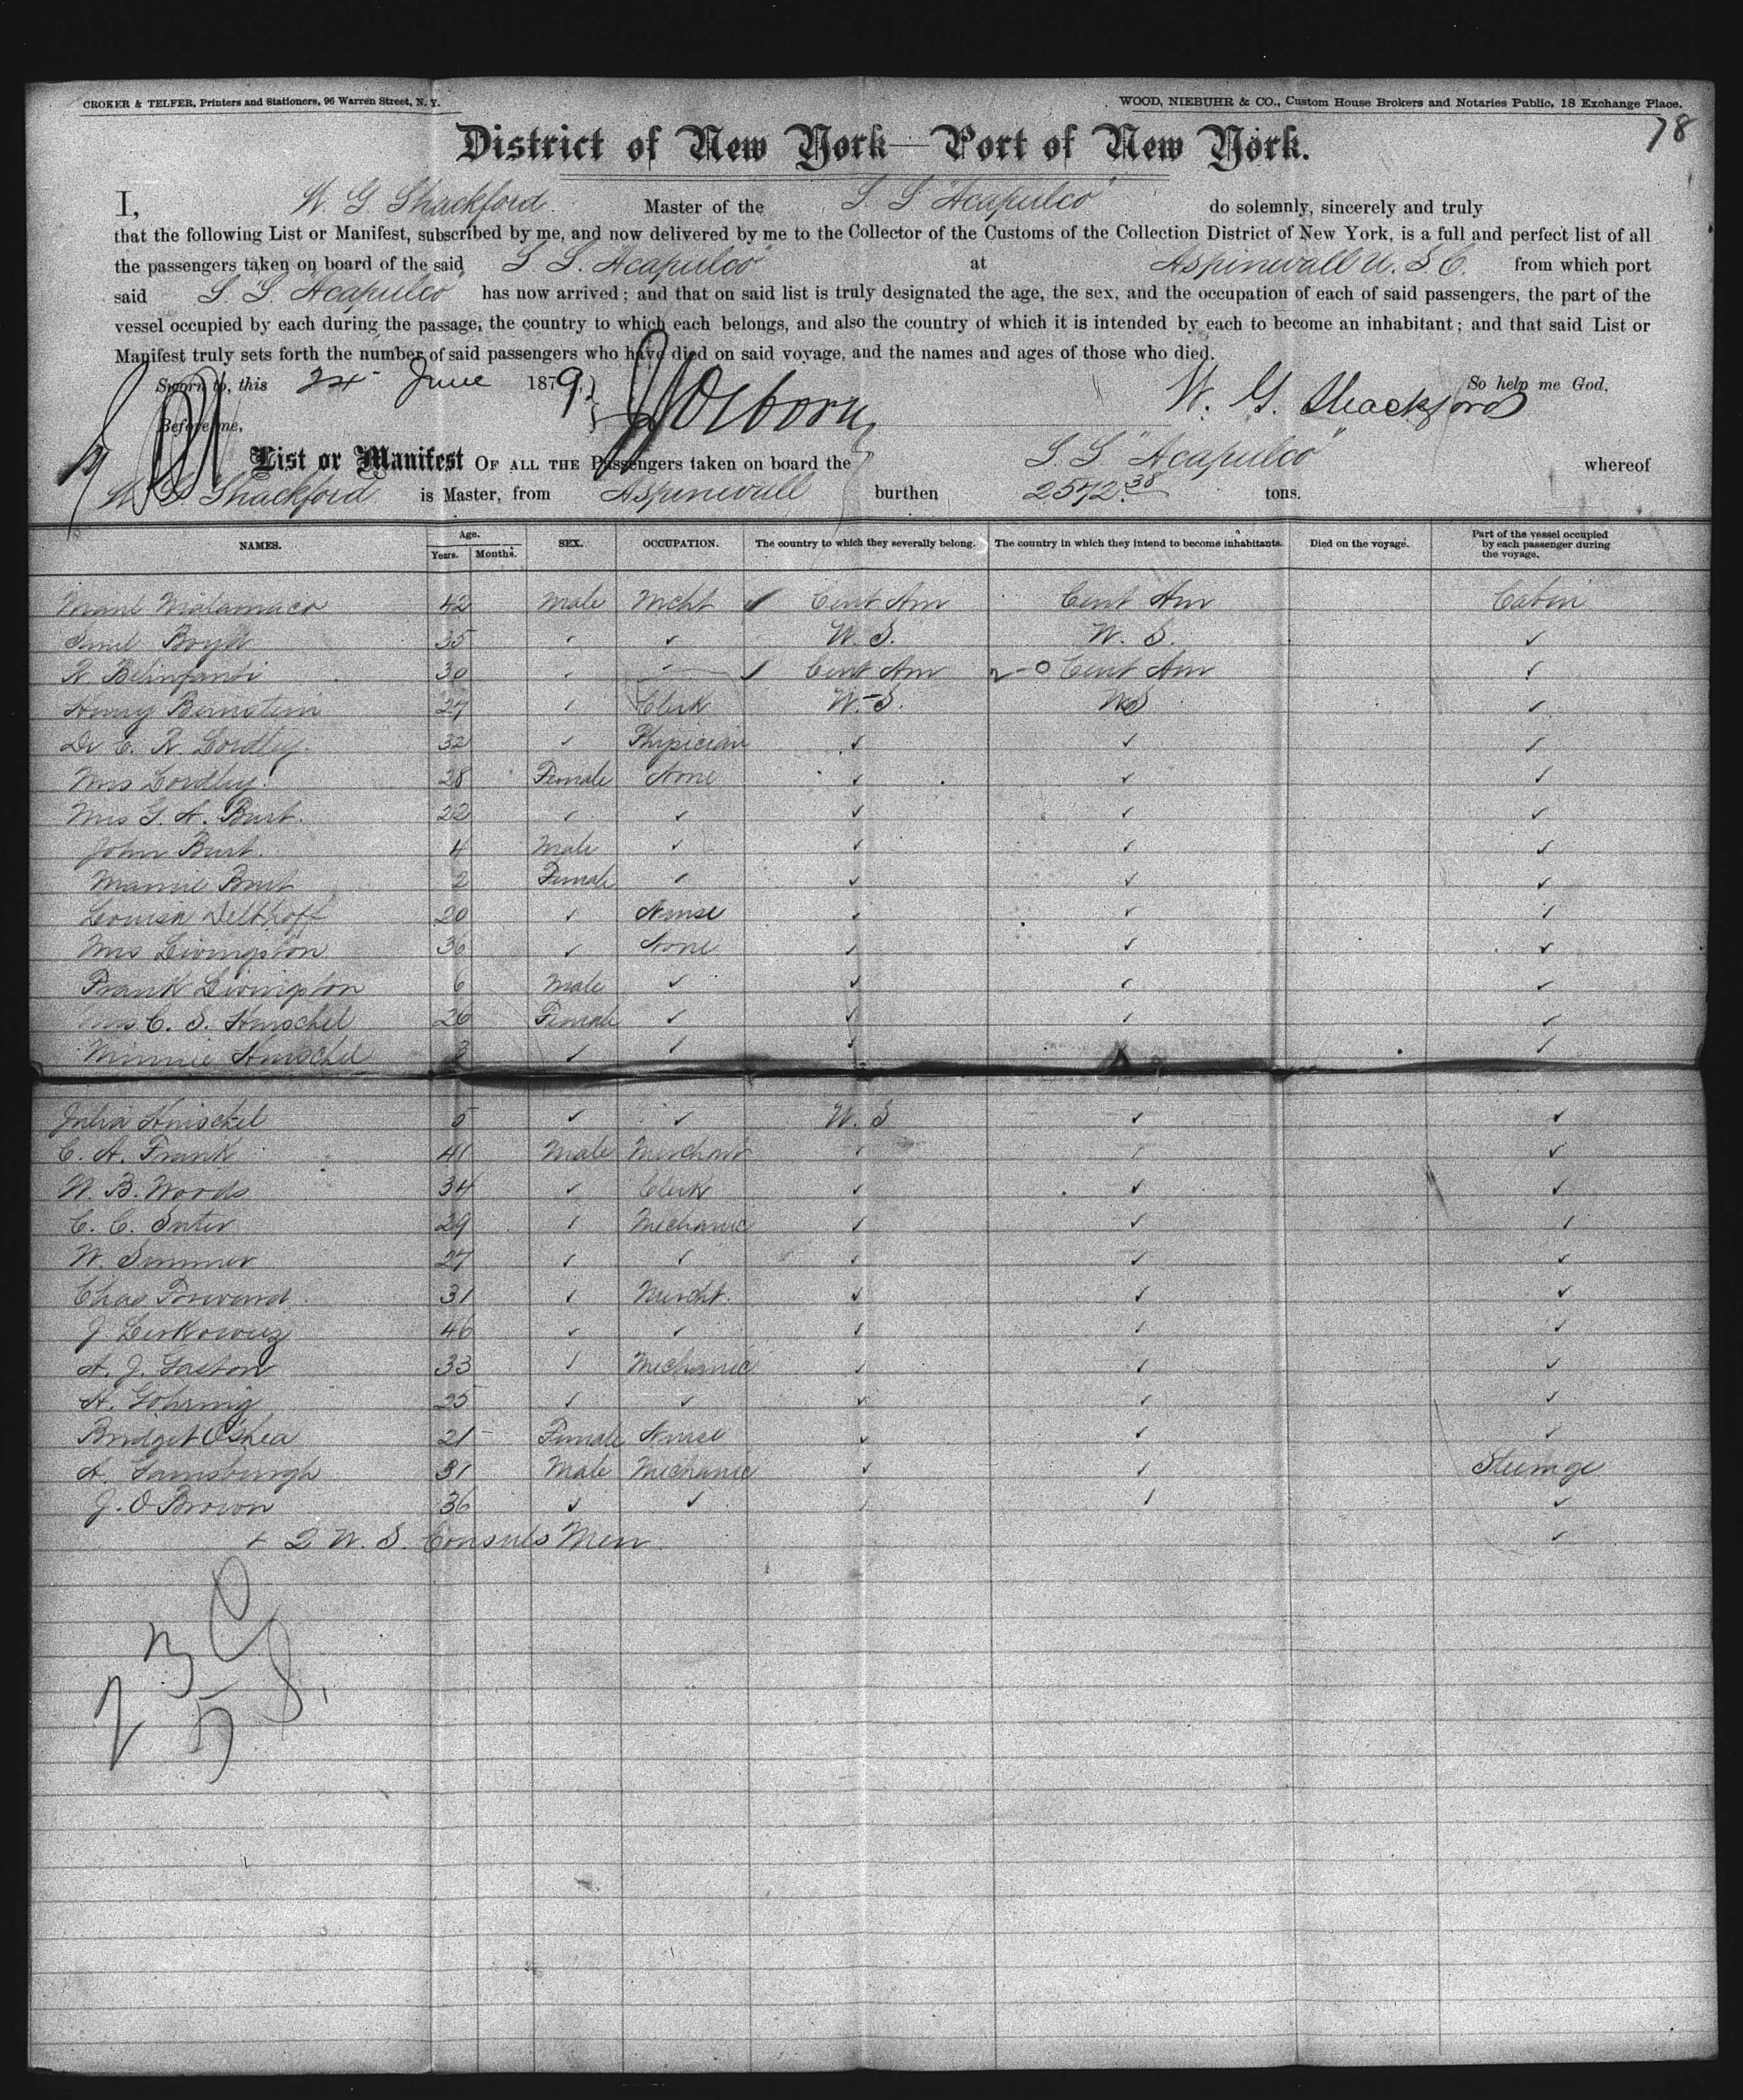 CROKER & TELFER, Printers and Stationers, 96 Warren Street, N. Y.
WOOD, NIEBUHR & CO., Custom House Brokers and Notaries Public, 18 Exchange Place.
78
District of New York—Port of New York.
I, W. G Shackford Master of the S. S "Acapulco" do solemnly, sincerely and truly
that the following List or Manifest, subscribed by me, and now delivered by me to the Collector of the Customs of the Collection District of New York, is a full and perfect list of all
the passengers taken on board of the said S. S. "Acapulco" at Aspinwall U. S. C. from which port
said S. S. "Acapulco" has now arrived; and that on said list is truly designated the age, the sex, and the occupation of each of said passengers, the part of the
vessel occupied by each during the passage, the country to which each belongs, and also the country of which it is intended by each to become an inhabitant; and that said List or
Manifest truly sets forth the number of said passengers who have died on said voyage, and the names and ages of those who died.
Sworn to, this 24 June 1879. So help me God.
W. G. Shackford
Before me, Osborn
List or Manifest OF ALL THE Passengers taken on board the S S "Acapulco" whereof
W. G. Shackford is Master, from Aspinwall burthen 2572.38 tons.
NAMES. Age. Years. Months. SEX. OCCUPATION. The country to which they severally belong. The country in which they intend to become inhabitants. Died on the voyage. Part of the vessel occupied by each passenger during the voyage.
Matamaca 42 Male Mcht Cent Am Cent Am Cabin
Boyd 35 U. S. U. S.
30 Cent Am Cent Am
Henry Bernstein 27 Clerk U. S. US
Dr C. R. Lordley 32 Physician
Mrs Lordley 28 Female None
Mrs G. A. Burt. 22
John Burt. 4 Male
Mamie Burt 2 Female
Louisa Delthoff 20 Nurse
Mrs Livingston 36 None
Frank Livingston 6 Male
Mrs C. S. Hinschel 26 Female
Minnie Hinschel 3
Julia Hinschel 5 U. S
C. A. Frank 41 Male Merchant
W. B. Woods 34 Clerk
C. C. Suter 29 Mechanic
W. Summer 27
Chas Forward 31 Mercht.
J Lerkowicz 46
A. J. Gaston 33 Mechanic
H. Gohring 25
Bridget O'Shea 21 Female Nurse
A. Gainsburgh 31 Male Mechanic Steerage
J. O Brown 36
+ 2 U. S. Consuls Men